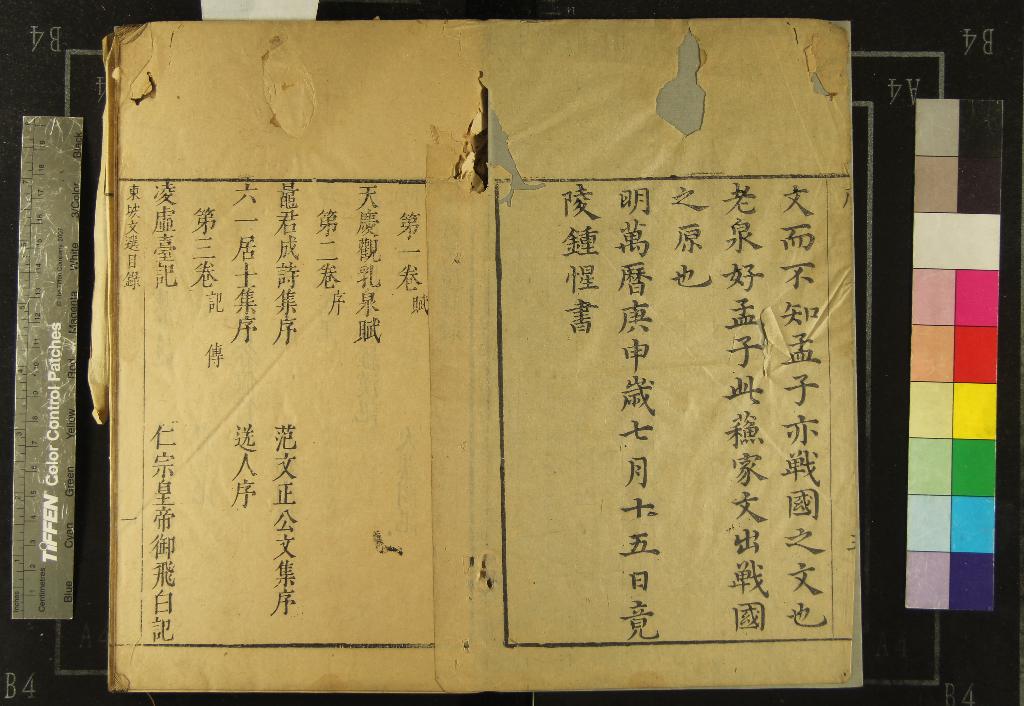 文而不知孟子亦戰國之文也
老泉好孟子此蘓家文出戰國
之原也
明萬曆庚申歲七月十五日竟
陵鍾惺書
第一卷 賦
天慶觀乳泉賦
第二卷 序
鼂君成詩集序 范文正公文集序
六一居士集序 送人序
第三卷 記 傳
凌虛臺記 仁宗皇帝御飛白記
東坡文選目錄 一
B4
B4
A4
B4
B4
TIFFEN Color Control Patches
Inches
Centimetres
Blue
Cyan
Green
Yellow
Red
Magenta
White
3/Color
Black